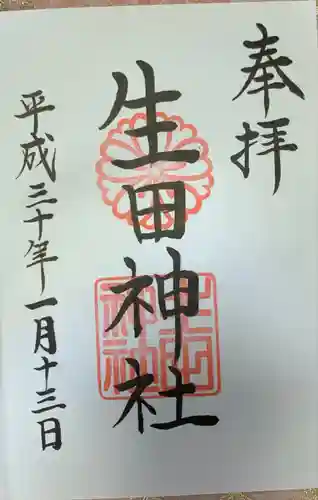 奉拝
生田神社
平成三十年一月十三日
生田神社